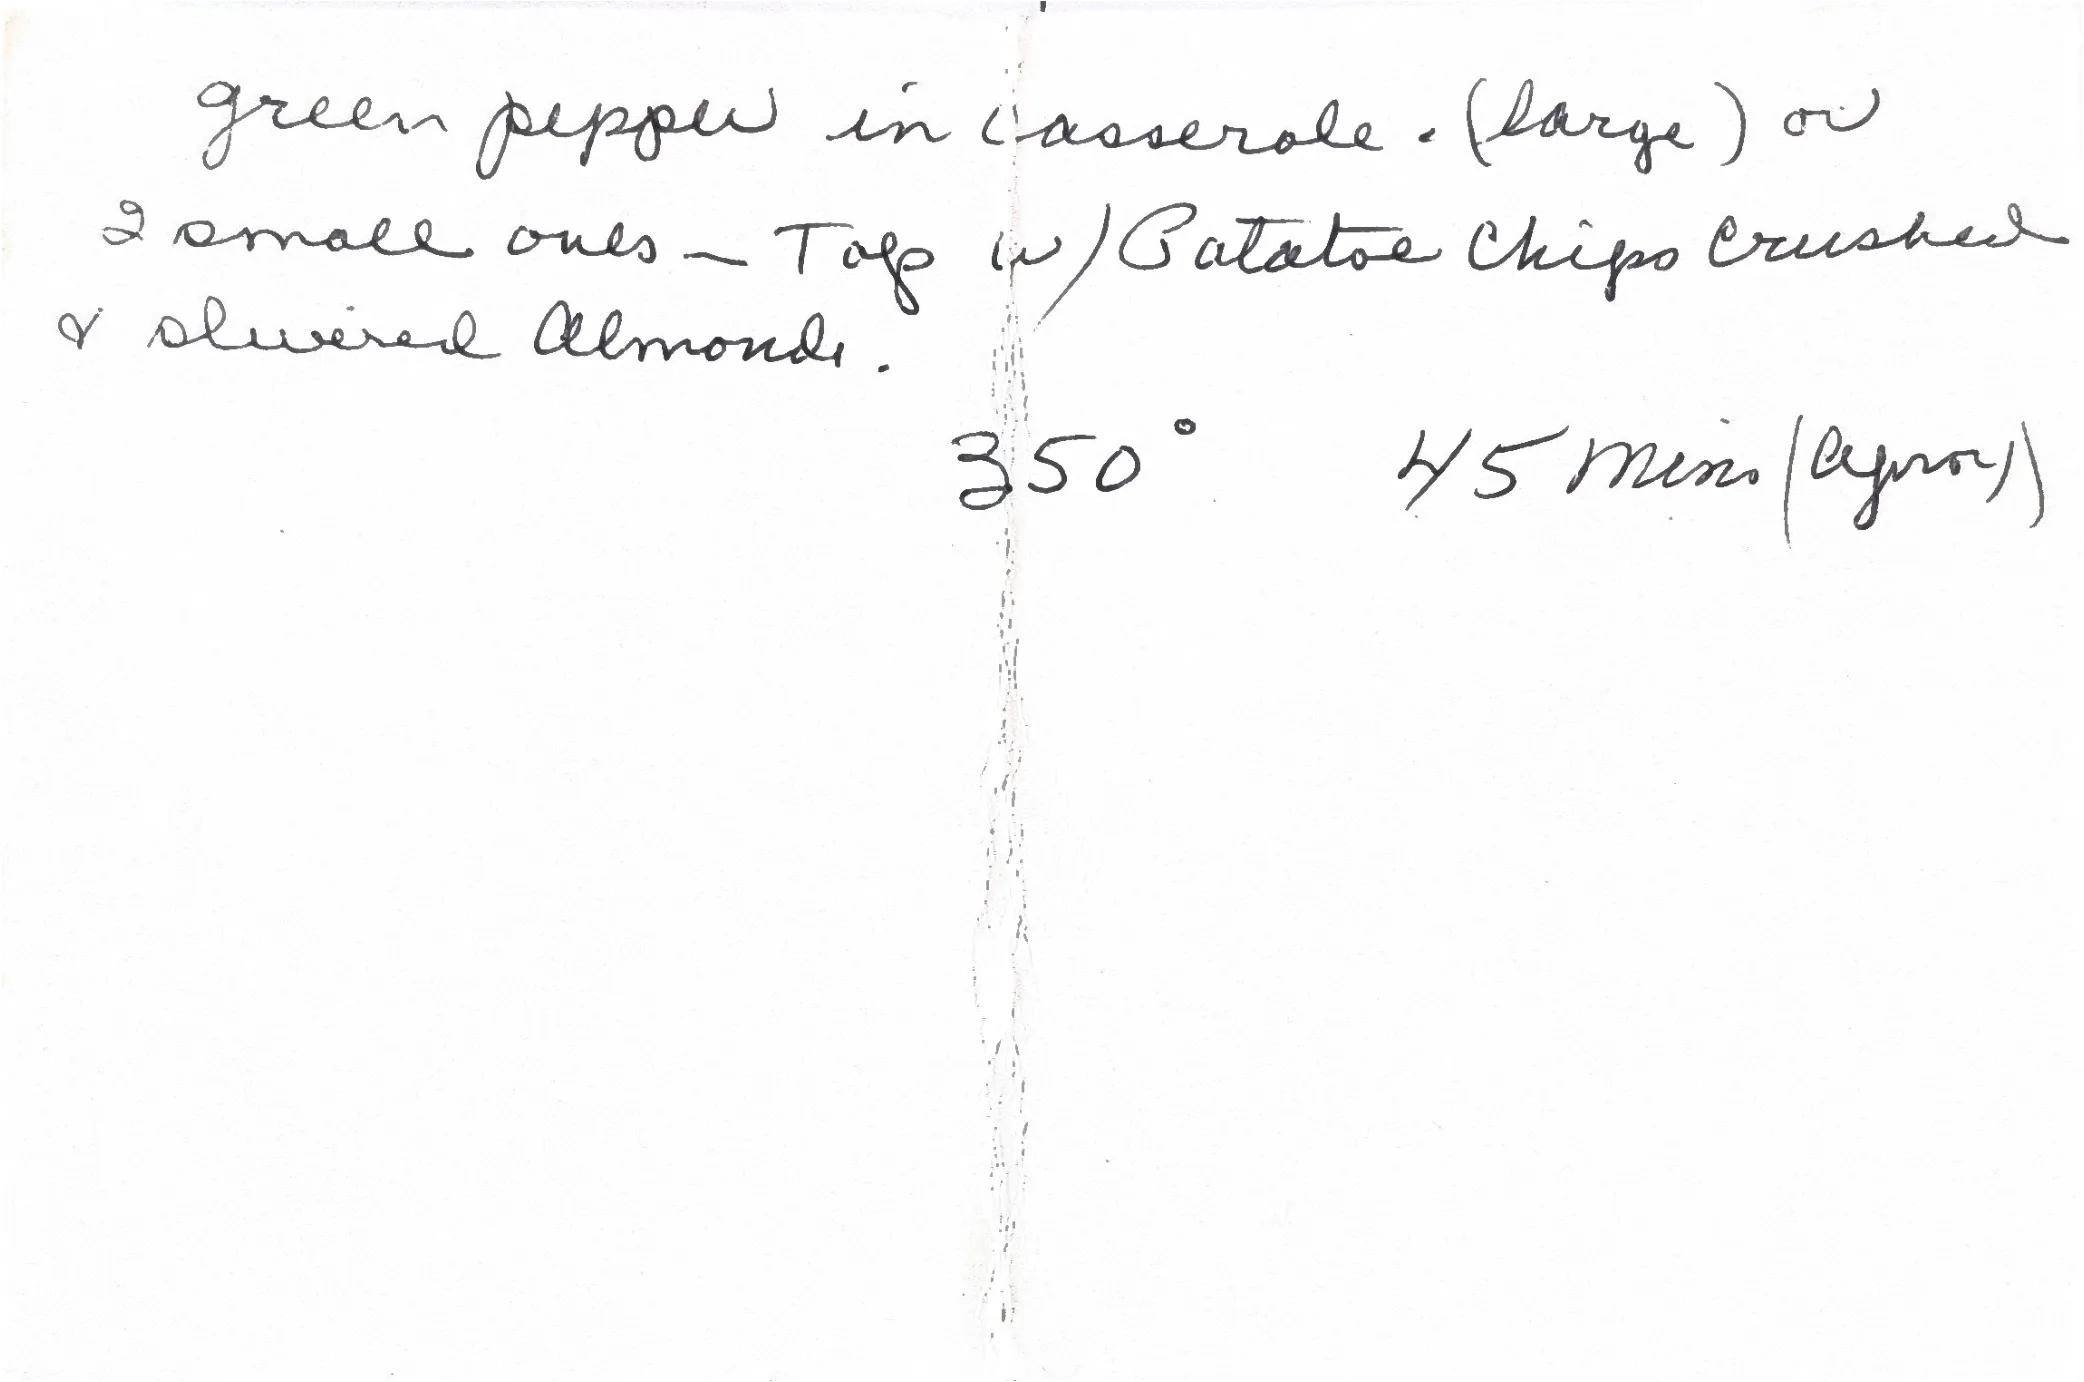 green pepper in casserole. (large) or
2 small ones - Top w/ Patatoe Chips Crushed
& slivered Almonds.
350° 45 Mins (Aprox)